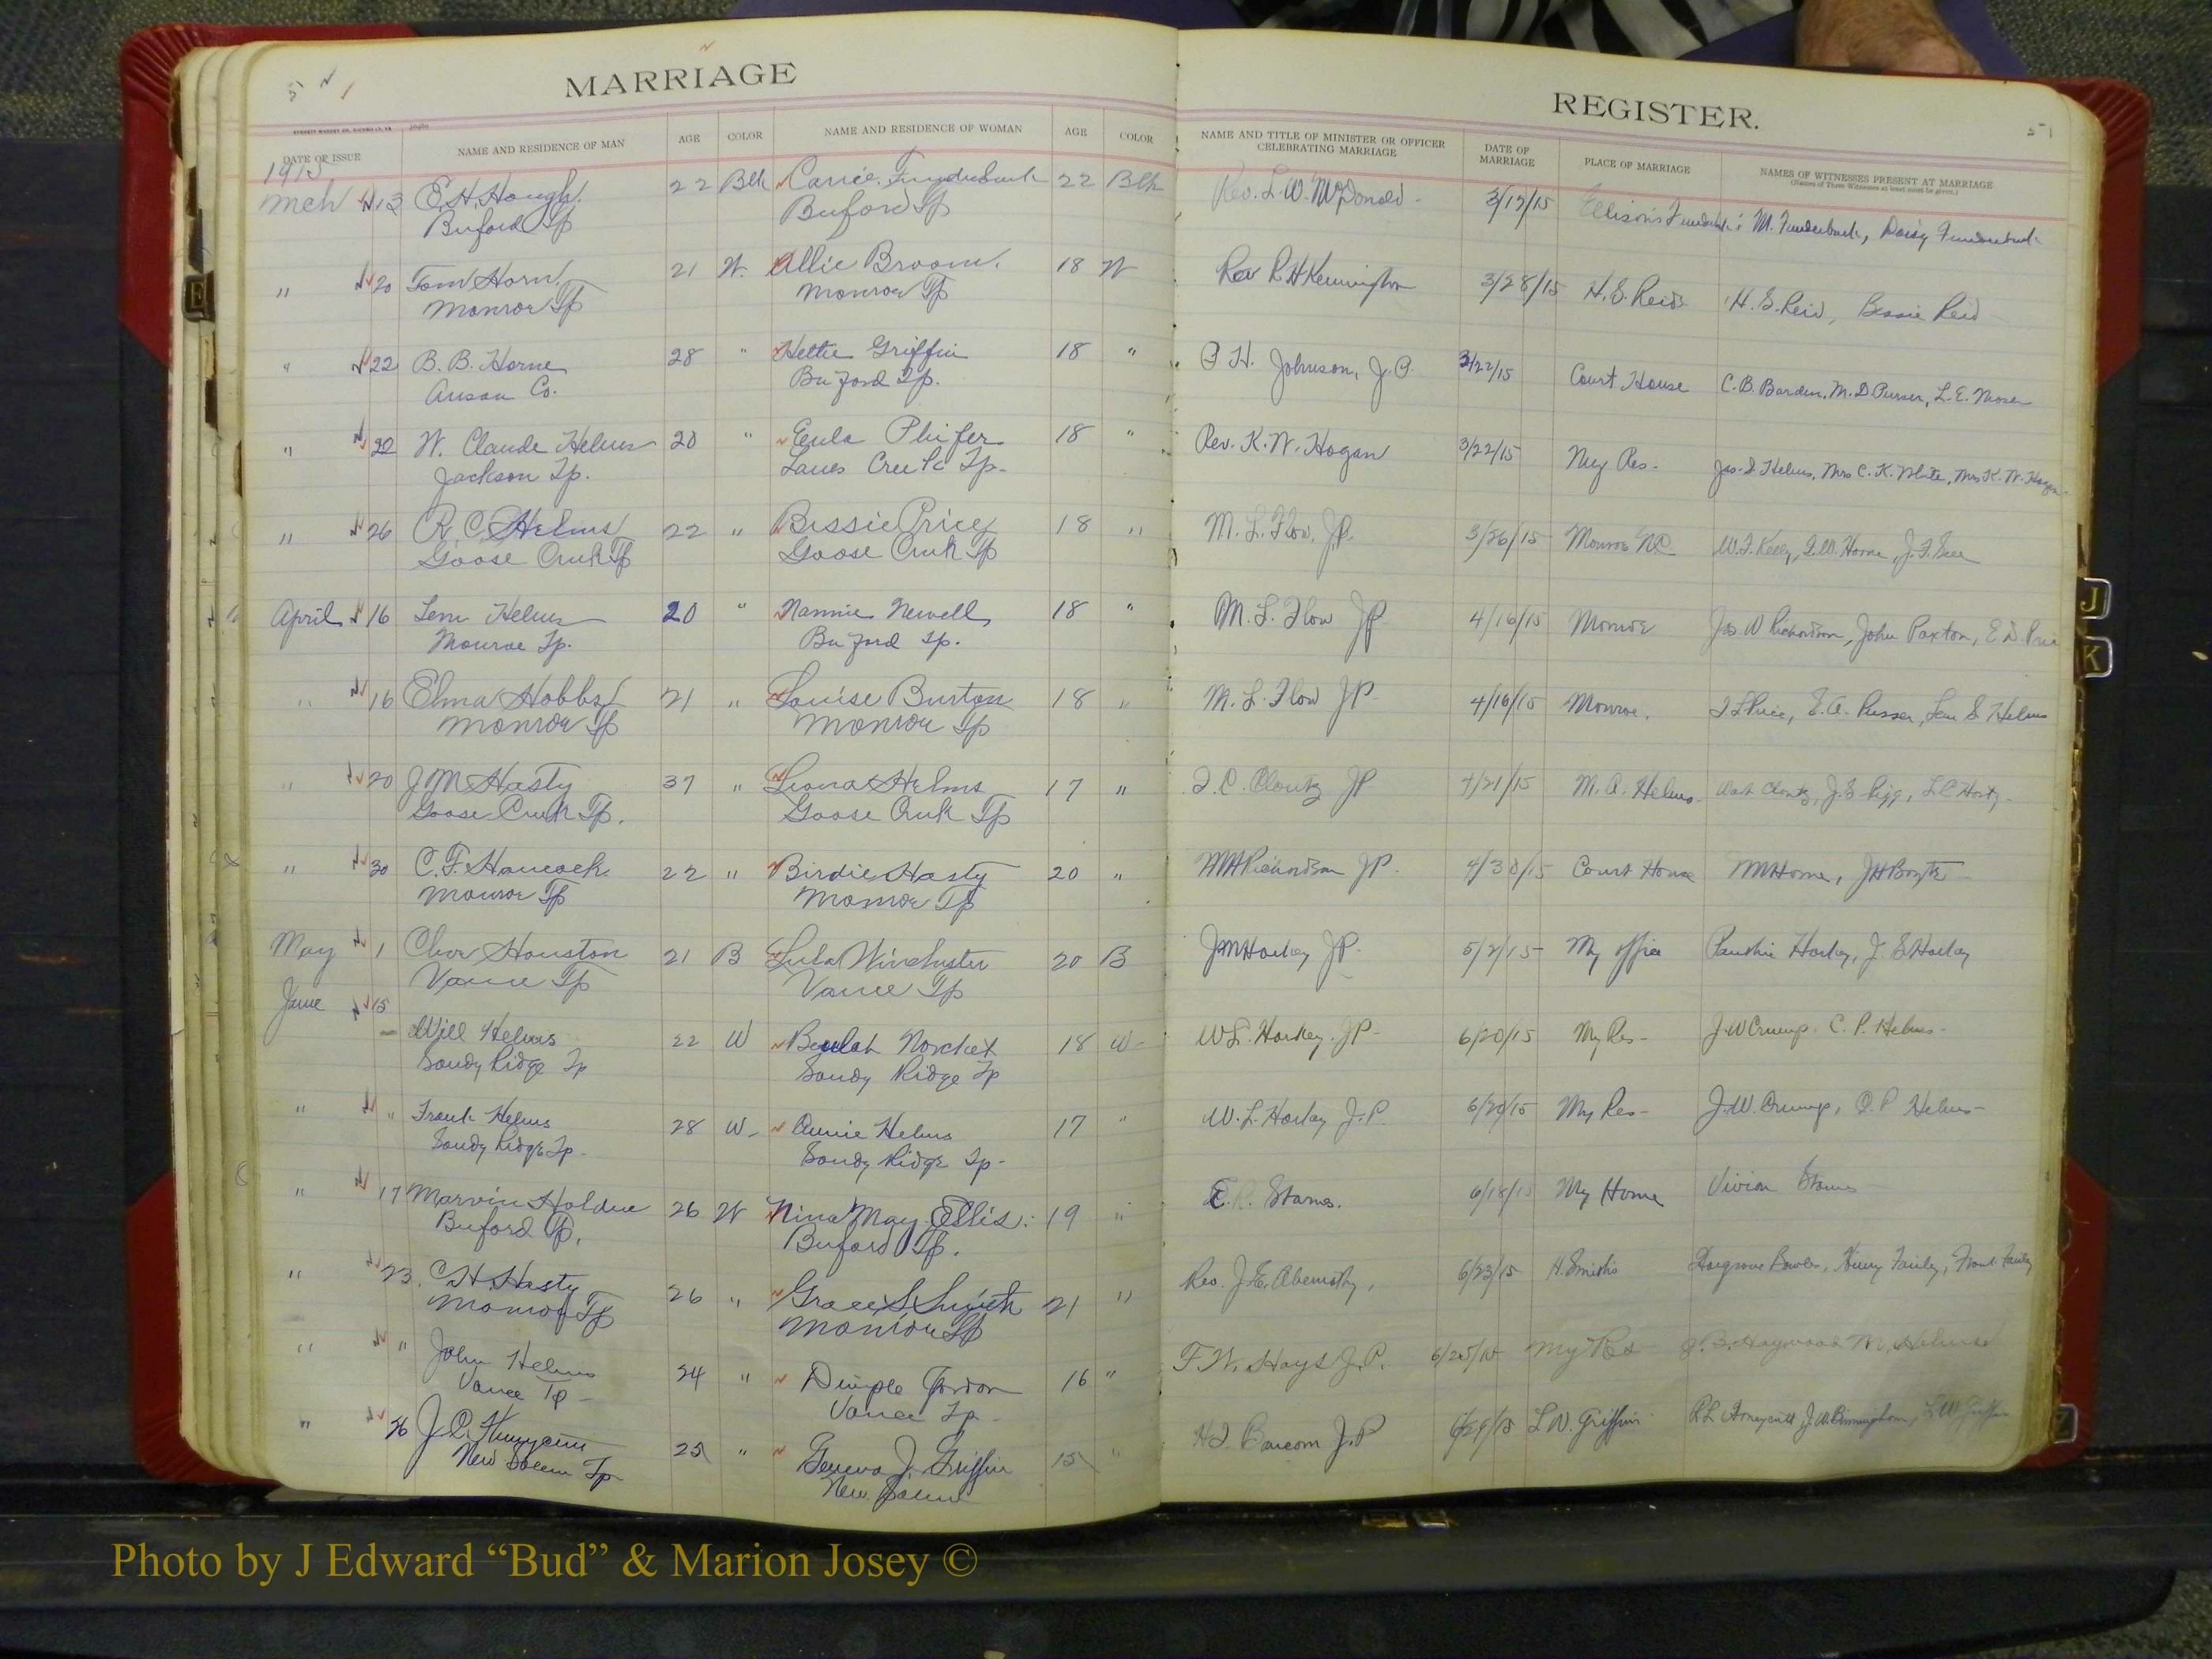 MARRIAGE
DATE OF ISSUE NAME AND RESIDENCE OF MAN AGE COLOR NAME AND RESIDENCE OF WOMAN AGE COLOR
1915
Mch 13 E. H. Hough 22 Blk Carrie Funderburk 22 Blk
Buford Tp Buford Tp
" 20 Tom Horn 21 W. Allie Broom 18 W
Monroe Tp Monroe Tp
" 22 B. B. Horne 28 " Hettie Griffin 18 "
Anson Co. Buford Tp.
" 22 W. Claude Helms 20 " Eula Phifer 18 "
Jackson Tp. Lanes Creek Tp.
" 26 R. C. Helms 22 " Bessie Price 18 "
Goose Creek Tp Goose Creek Tp
April 16 Lem Helms 20 " Nannie Newell 18 "
Monroe Tp. Buford Tp.
" 16 Elma Hobbs 21 " Louise Burton 18 "
Monroe Tp Monroe Tp
" 20 J M Hasty 37 " Leona Helms 17 "
Goose Creek Tp. Goose Creek Tp
" 30 C. F. Hancock 22 " Birdie Hasty 20 "
Monroe Tp Monroe Tp
May 1 Houston 21 B Lula Winchester 20 B
Vance Tp Vance Tp
June 15
Will Helms 22 W Beulah 18 W
Sandy Ridge Tp Sandy Ridge Tp
" " Frank Helms 28 W Annie Helms 17 "
Sandy Ridge Tp Sandy Ridge Tp
" 17 Marvin Holden 26 W Nina May Ellis 19 "
Buford Tp. Buford Tp.
" 23. Hasty 26 " Grace S Smith 21 "
Monroe Tp Monroe Tp
" " John Helms 24 " Dimple Gordon 16 "
Vance Tp Vance Tp
" 26 J. 25 " Geneva J. Griffin 15 "
New Salem Tp New Salem
REGISTER.
NAME AND TITLE OF MINISTER OR OFFICER CELEBRATING MARRIAGE DATE OF MARRIAGE PLACE OF MARRIAGE NAMES OF WITNESSES PRESENT AT MARRIAGE
(Names of Three Witnesses at least must be given.)
Rev. L. W. McDonald M. Funderburk, Daisy Funderburk
Rev R H Kennington 3/28/15 H. S. Reid's H. S. Reid, Bessie Reid
H. Johnson, J. P. 3/22/15 Court House C. B. Barden, M. D. Purser, L. E. Moser
Rev. K. W. Hogan 3/22/15 My Res. Helms, Mrs C. K. White, Mrs K. W. Hogan
M. L. Flow, JP. 3/26/15 Monroe NC W. F. Kelly, Horne
M. L. Flow JP 4/16/15 Monroe Jas. W Richardson, John Paxton, E D.
M. L. Flow JP 4/16/15 Monroe. E. A. Purser, Lem S Helms
Clontz JP 4/21/15 M. A. Helms
Richardson JP. 4/30/15 Court House
JP. 5/2/15 My office
W L. JP 6/20/15 My Res J. W Crump C. P. Helms
W. L. J. P. 6/20/15 My Res J. W. Crump, C. P Helms
Starnes. My Home Vivian Starnes
Rev. J. E. Abernethy, 6/23/15 H. Smith's Hargrove Bowles, Henry Fairley, Fairley
F. W. Hays J. P. My Res
Baucom J. P 6/29/15 L. W. Griffin
Photo by J Edward “Bud” & Marion Josey ©